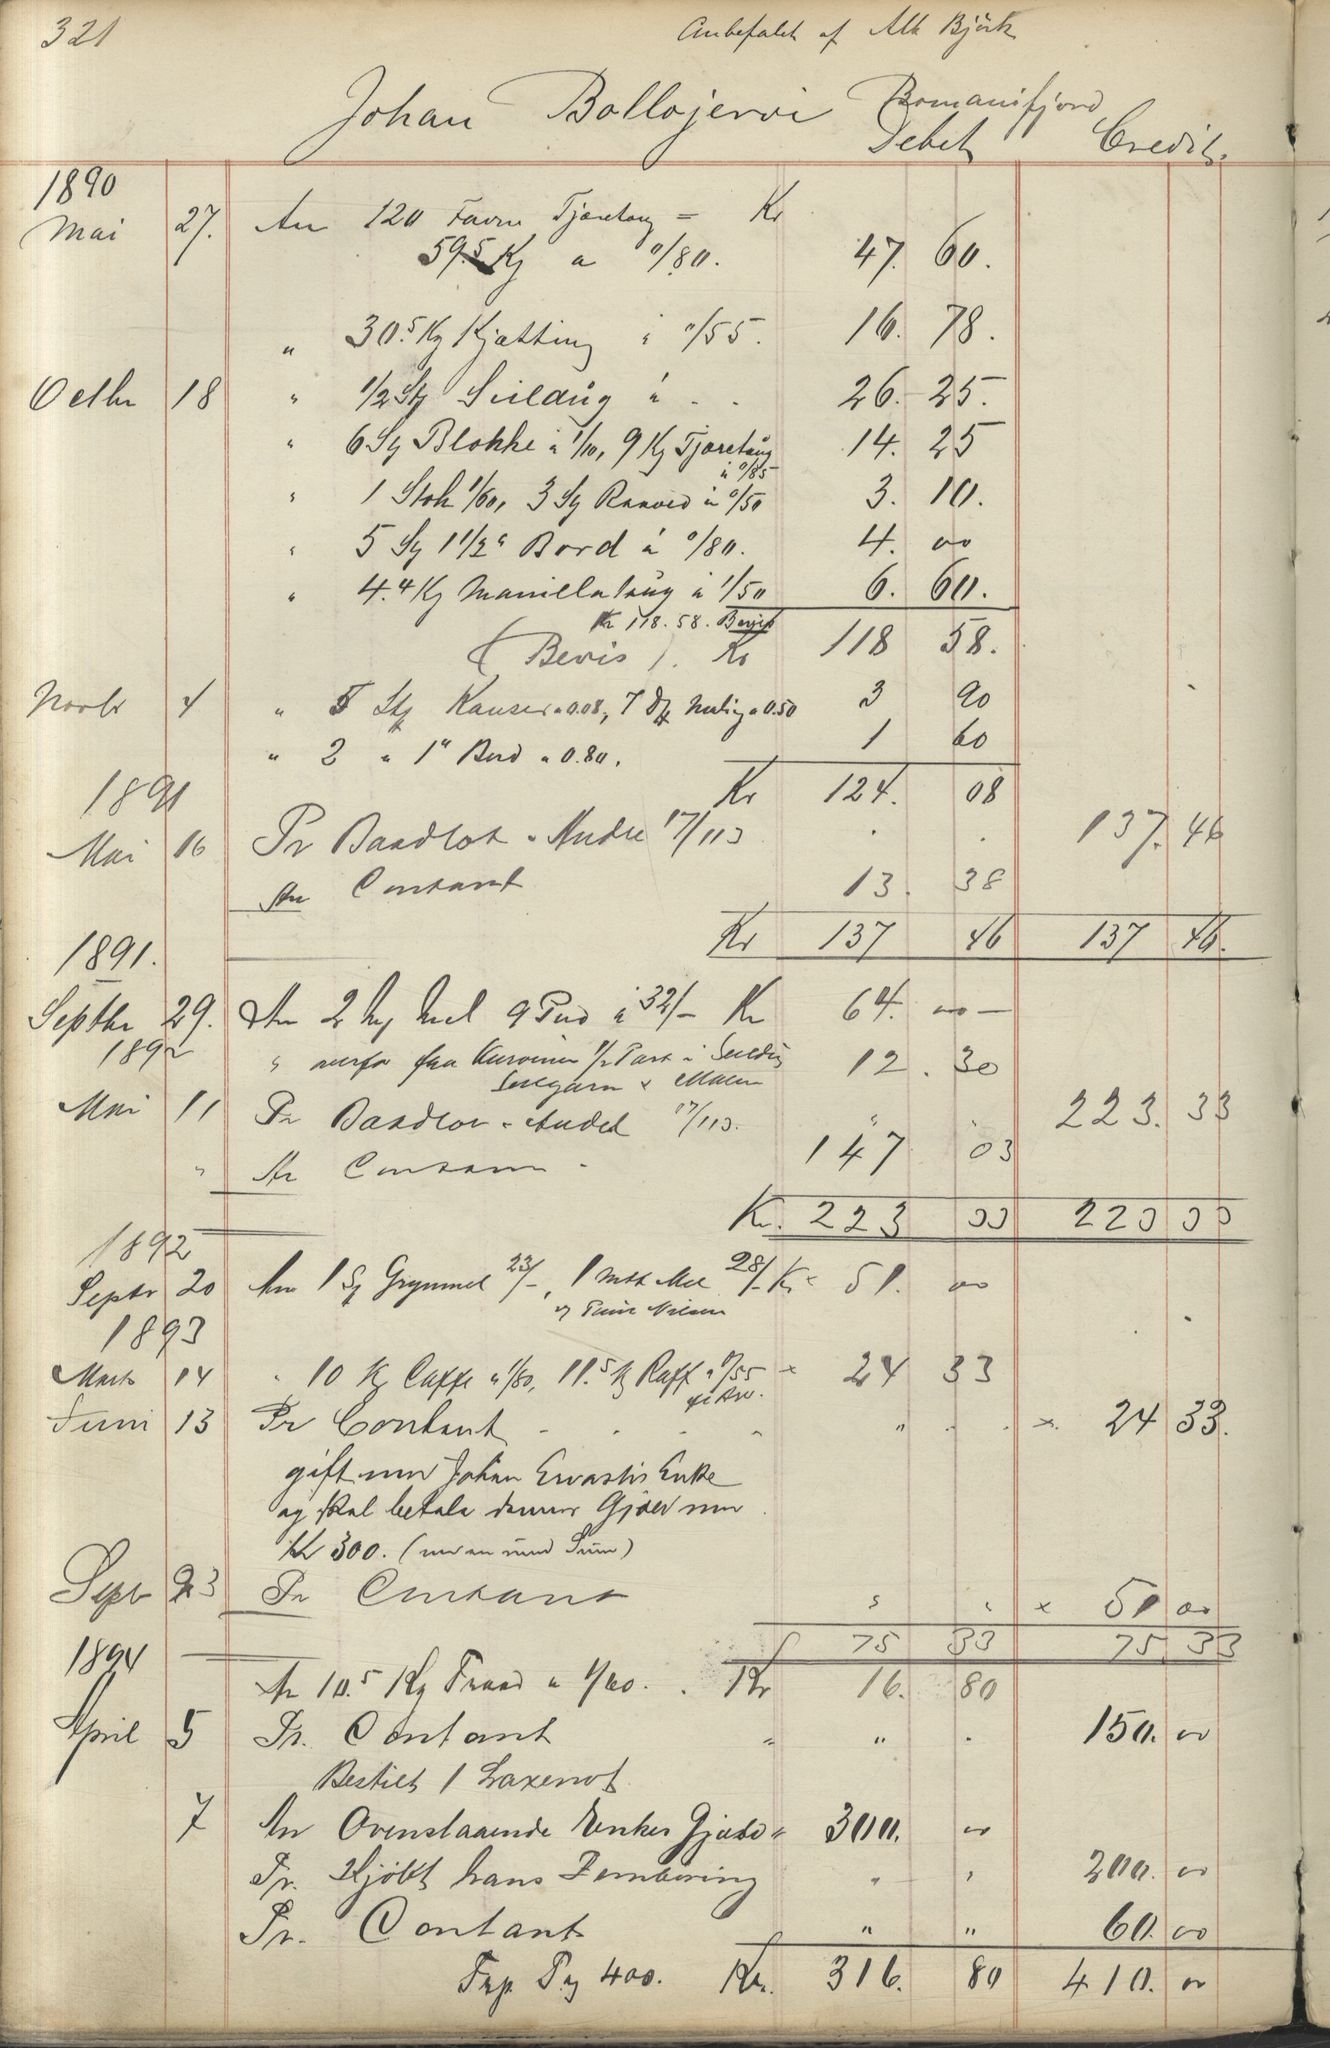 321
Anbefalet af Mtk Björk
Johan Bollojervi Bomanifjord
Debet Credit.
1890
Mai 27. An 120 Favne Tjæretoug = Kr
59.5 Kg a 0/80. 47. 60.
" 30.5 Kg Kjætting á 0/55. 16. 78.
Octbr 18 " 1/2 Stk Seildúg á . . 26. 25.
" 6 St Blokke á 1/10, 9 Kg Tjæretaug á 0/85 14. 25
" 1 Stok 1/60, 3 St Raaved á 0/50 3. 10.
" 5 St 1 1/2" Bord á 0/80. 4. 00
" 4.4 Kg Manillatoug á 1/50 6. 60.
Kr 118. 58. Bevis
(Bevis). Kr 118 58.
Novbr 4 " 5 Stk Kauser a 0.08, 7 a 0.50 3 90
" 2 " 1" Bord a 0.80. 1 60
Kr 124. 08
1891
Mai 16 Pr Baadlot - Andre 17/113 . . 137. 46
An Contant 13. 38
Kr 137 46 137 46.
1891.
Septbr 29. An 2 Mel 9 Pud á 32/- Kr 64. 00
1892
" 1/2 Part i Seildug 12. 30
Mai 11 Pr Baadlot - Andel 17/113. " " 223. 33
" An Contant 147 03
Kr. 223 33 223 33
1892
Septr 20 An 1 St Grynmel 23/-, 1 Mel 28/- Kr x 51. 00
1893
Marts 14 " 10 Kg Caffe a 1/80, 11.5 Kg Raff a 0/55 x 24 33
Juni 13 Pr Contant " . . x 24 33.
gift med Johan Ervastis Enke
og skal betale dennes Gjæld
Kr 300.
Sept 23 Pr Contant " " x 51 00
75 33 75 33
1894
An 10.5 Kg Traad a 1/60. . Kr 16. 80
April 5 Pr. Contant " " . 150. 00
Bestilt 1 Laxenot
7 An Ovenstaaende Enkes Gjæld " 300. 00
Pr. Kjøbt hans Fembøring " " 200. 00
Pr. Contant " " 60. 00
Trp. Pag 400. Kr. 316. 80 410. 00